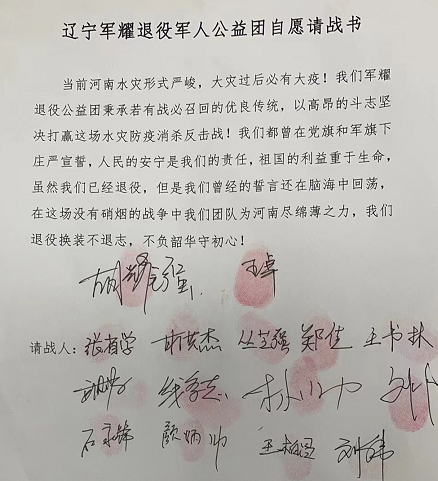 辽宁军耀退役军人公益团自愿请战书
当前河南水灾形式严峻，大灾过后必有大疫！我们军耀
退役公益团秉承若有战必召回的优良传统，以高昂的斗志坚
决打赢这场水灾防疫消杀反击战！我们都曾在党旗和军旗下
庄严宣誓，人民的安宁是我们的责任，祖国的利益重于生命，
虽然我们已经退役，但是我们曾经的誓言还在脑海中回荡，
在这场没有硝烟的战争中我们团队为河南尽绵薄之力，我们
退役换装不退志，不负韶华守初心！
王卓
请战人： 郑佳 王书林
刘伟